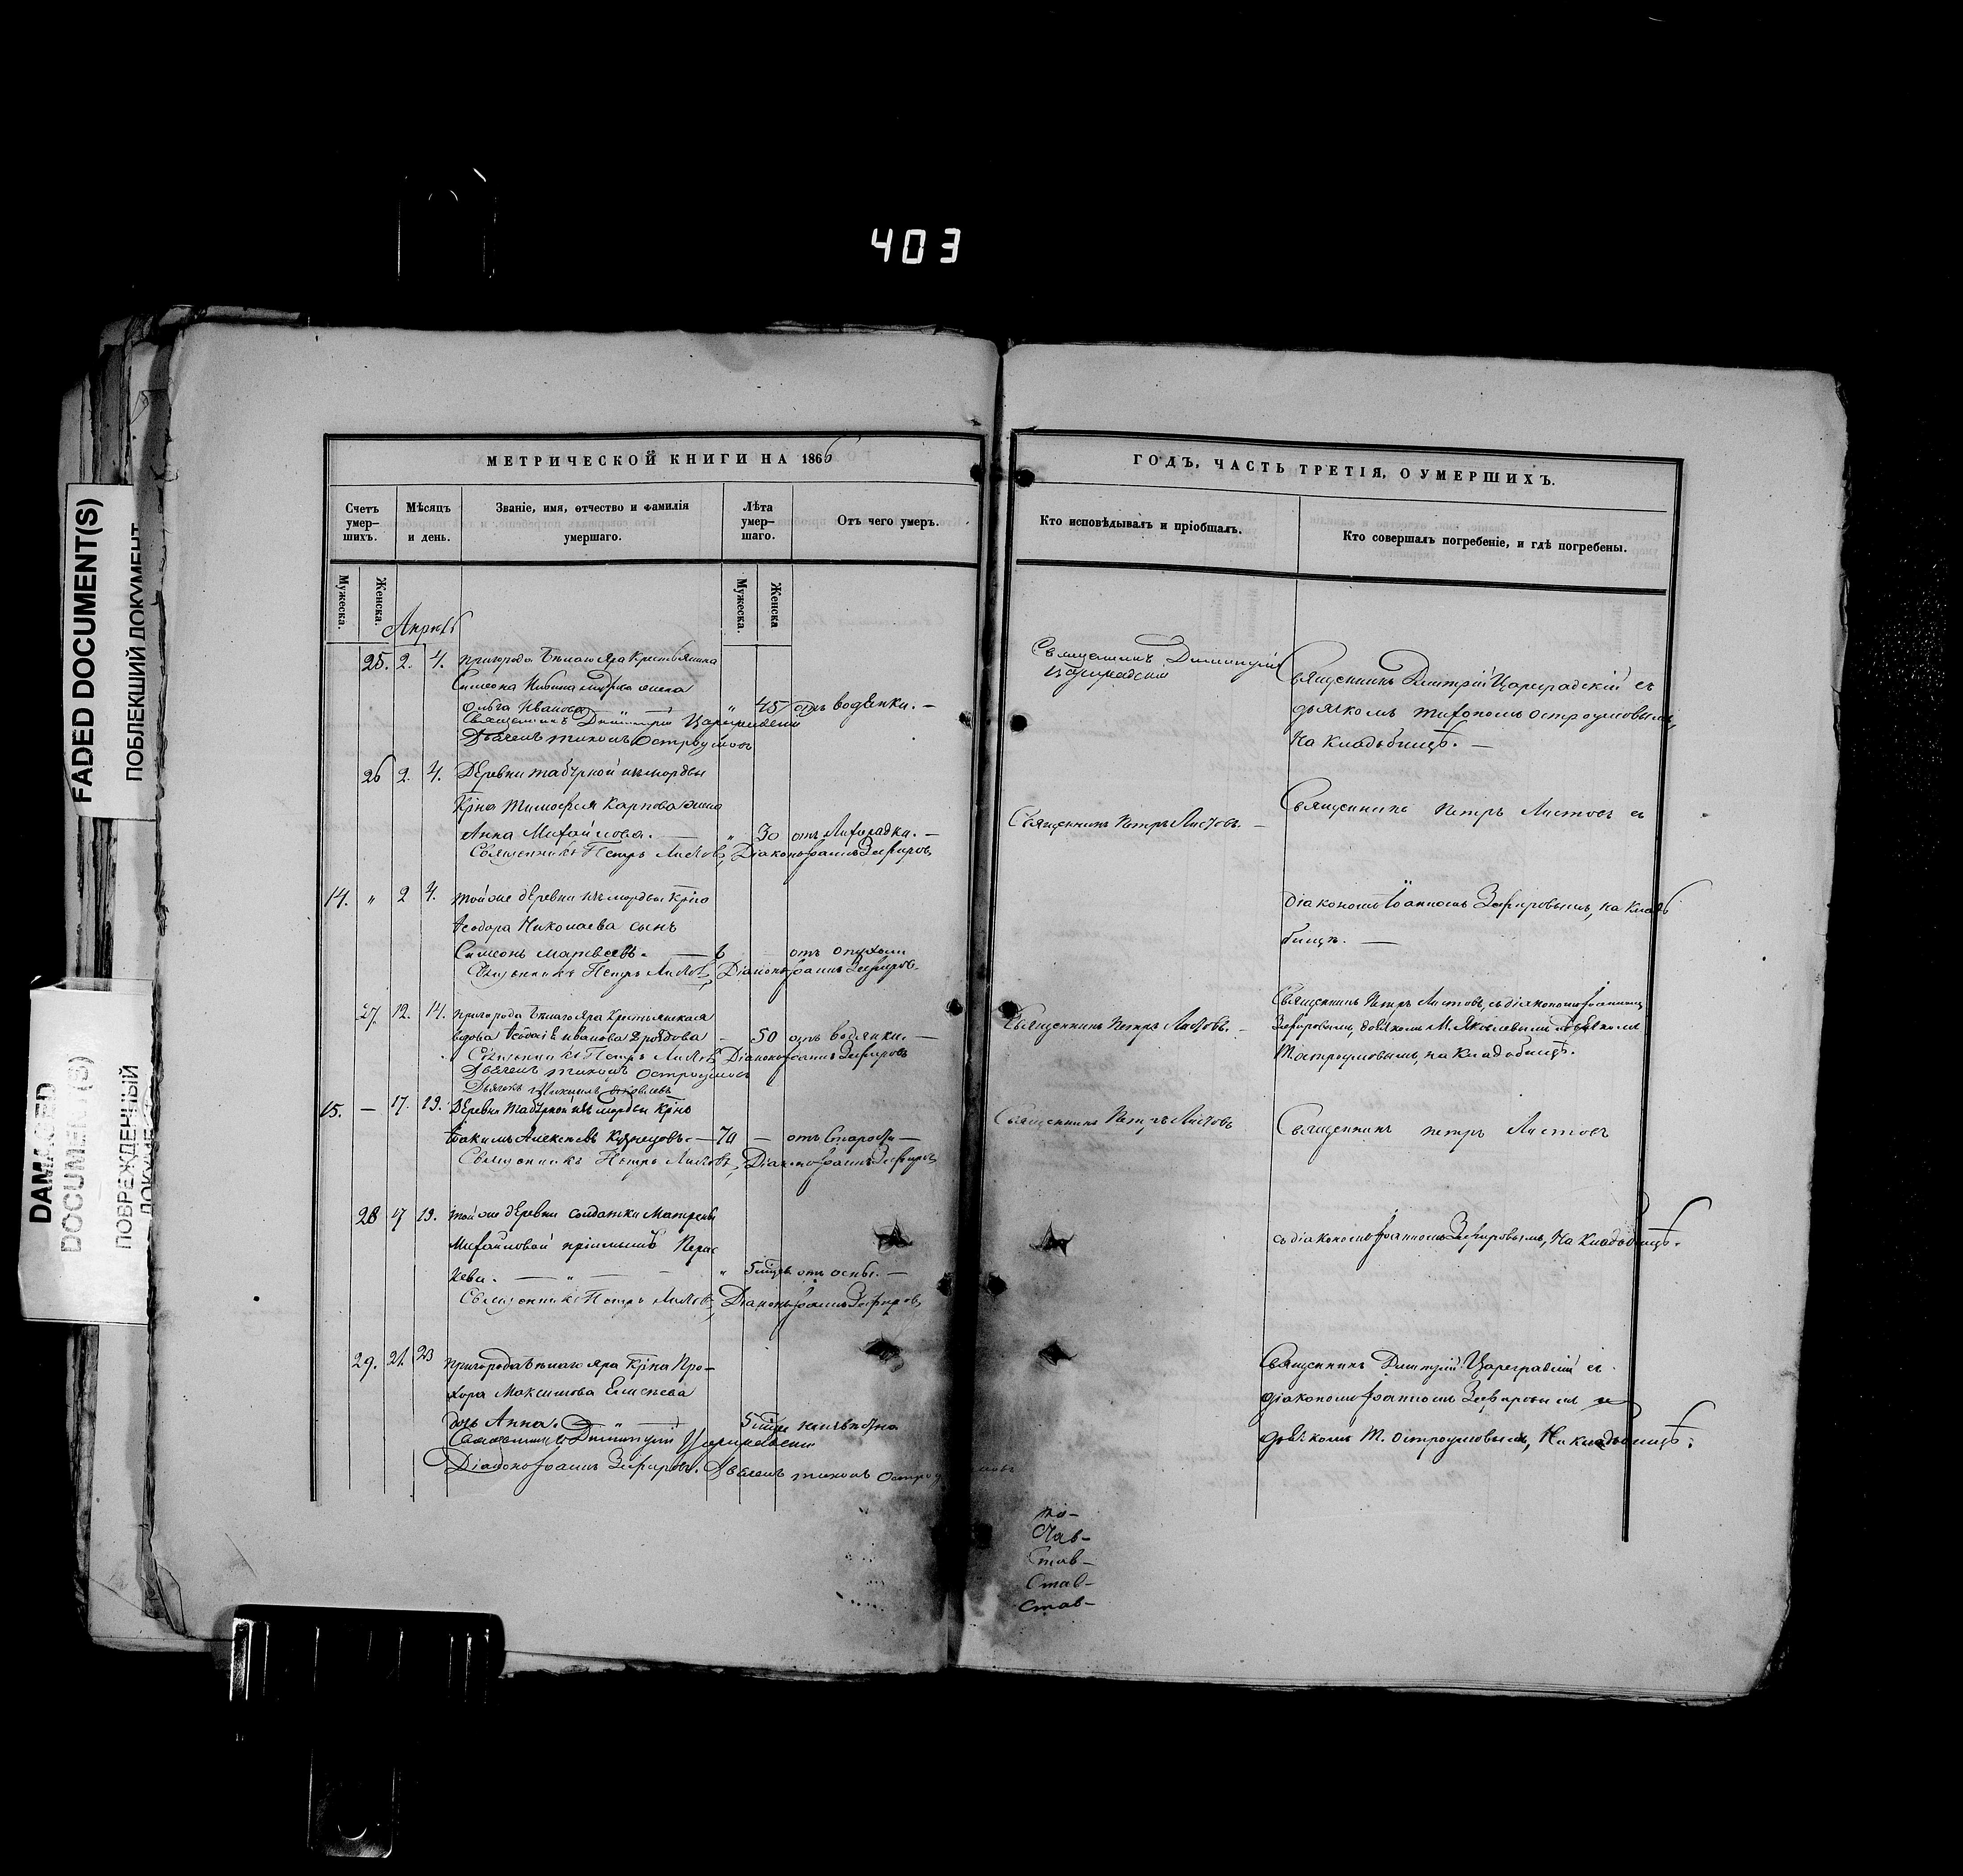 403
FADED DOCUMENT(S)
ПОБЛЕКШИЙ ДОКУМЕНТ
DAMAGED
DOCUMENT(S)
ПОВРЕЖДЕННЫЙ
МЕТРИЧЕСКОЙ КНИГИ НА 1866
Счетъ умер-шихъ.
Мѣсяцъ и день.
Званіе, имя, отчество и фамилія умершаго.
Лѣта умер-шаго.
Отъ чего умеръ.
Мужеска.
Женска.
Мужеска.
Женска
Апрѣль
25. 2. 4. Пригорода Бѣлаго Яра Крестьянина
Симеона жена
Ольга Иванова " 45 отъ водянки. —
Священникъ Димитрій Цареградскій
Дьячекъ Тихонъ Остроумовъ
26 2. 4. Деревни изъ мордвы
Кр͠на Тимофея Карпова жена
Анна Михайлова. — " 30 отъ Лихорадки. —
Священникъ Петръ Листовъ, Діаконъ Іоаннъ Зефировъ
14. " 2 4. Той же деревни изъ мордвы Кр͠на
Ѳеодора Николаева сынъ
Симеонъ Матвеевъ. — 6 отъ опухоли
Священникъ Петръ Листовъ, Діаконъ Іоаннъ Зефировъ.
27. 12. 14. Пригорода Бѣлаго Яра Крестьянская
вдова Иванова — 50 отъ водянки. —
Священникъ Петръ Листовъ Діаконъ Іоаннъ Зефировъ
Дьячекъ Тихонъ Остроумовъ
Дьячекъ Михаилъ Яковлевъ
15. — 17. 19. Деревни изъ мордвы Кр͠нъ
Іоакимъ Алексѣевъ Кузнецовъ. — 70 — отъ Старости —
Священникъ Петръ Листовъ, Діаконъ Іоаннъ Зефировъ
28 17 19. Той же деревни солдатки Матрены
Михайловой Парас
кева. — " — " 5 отъ оспы. —
Священникъ Петръ Листовъ, Діаконъ Іоаннъ Зефировъ,
29. 21. 23 Пригорода Бѣлаго Яра Кр͠на Про-
хора Максимова Елисѣева
дочь Анна. — " — 5
Священникъ Димитрій Цареградскій
Діаконъ Іоаннъ Зефировъ. Дьячекъ Тихонъ Остроумовъ
ГОДЪ, ЧАСТЬ ТРЕТІЯ, О УМЕРШИХЪ.
Кто исповѣдывалъ и пріобщалъ.
Кто совершалъ погребеніе, и гдѣ погребены.
Священникъ Димитрій
Цареградскій
Священникъ Дмитрій Цареградскій съ
дьячкомъ Тихономъ Остроумовымъ,
На Кладбищѣ. —
Священникъ Петръ Листовъ. —
Священникъ Петръ Листовъ съ
діакономъ Іоанномъ Зефировымъ, на Клад
бищѣ. —
Священникъ Петръ Листовъ. —
Священникъ Петръ Листовъ, съ діакономъ Іоанномъ
Зефировымъ, дьячкомъ М. Яковлевымъ и дьячкомъ
Т. Остроумовымъ, на Кладбищѣ.
Священникъ Петръ Листовъ
Священникъ Петръ Листовъ
съ діакономъ Іоанномъ Зефировымъ, На Кладбищѣ.
Священникъ Дмитрій Цареградскій съ
діакономъ Іоанномъ Зефировымъ и
дьячкомъ Т. Остроумовымъ, На кладбищѣ.
Став-
Став-
Став-